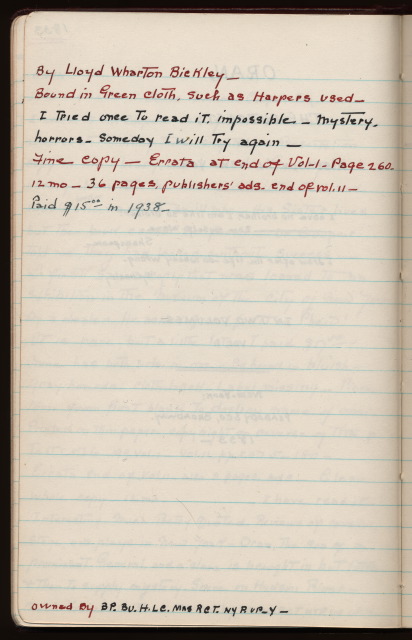 By Lloyd Wharton Bickley_
Bound in Green cloth, such as Harpers used—
I Tried once To read iT. impossible — mystery.
horrors. Someday I will Try again —
Fine copy — Errata at end of Vol-1. Page 260.
12mo — 36 pages, publishers' ads. end of vol. 11 —
Paid $15⁰⁰ in 1938_
owned By BP. BU. H. LC. MAS RCT. NY R UP_Y —